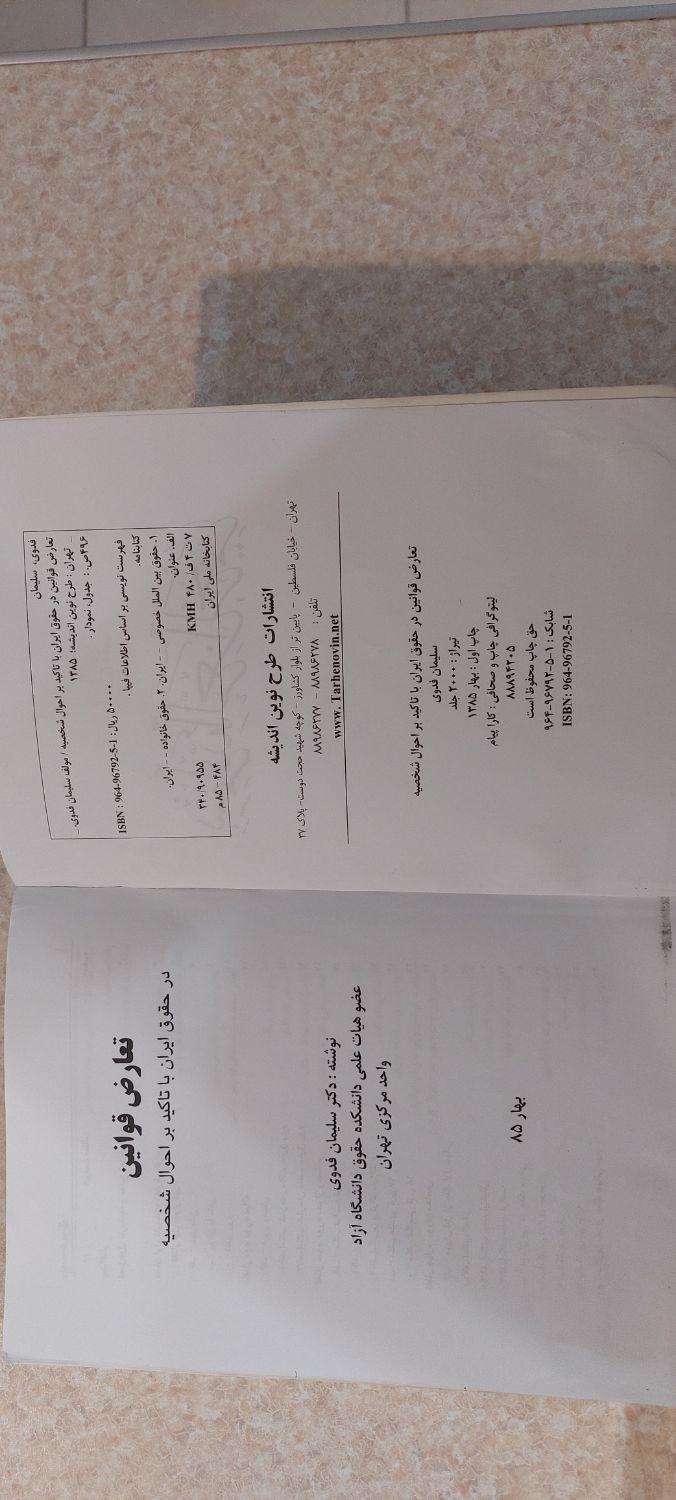 تعارض قوانین
در حقوق ایران با تاکید بر احوال شخصیه
نوشته : دکتر سلیمان فدوی
عضو هیات علمی دانشکده حقوق دانشگاه آزاد
واحد مرکزی تهران
بهار ۸۵
فدوی، سلیمان
تعارض قوانین در حقوق ایران با تاکید بر احوال شخصیه / مولف سلیمان فدوی. –
– تهران : طرح نوین اندیشه، ۱۳۸۵
۴۹۶ص. : جدول، نمودار.
۵۰۰۰۰ ریال : ISBN : 964-96792-5-1
فهرست نویسی بر اساس اطلاعات فیپا.
کتابنامه.
۱. حقوق بین الملل خصوصی -- ایران. ۲. حقوق خانواده -- ایران.
الف. عنوان.
۷ ت ۴ ف/ ۴۸۰ KMH ۳۴۰/۹۰۹۵۵
کتابخانه ملی ایران ۴۸۴ – ۸۵ م
انتشارات طرح نوین اندیشه
تهران – خیابان فلسطین – پایین تر از بلوار کشاورز – کوچه شهید حجت دوست- پلاک ۳۷
تلفن : ۸۸۹۸۶۲۷۸ – ۸۸۹۸۶۲۷۷
www. Tarhenovin.net
تعارض قوانین در حقوق ایران با تاکید بر احوال شخصیه
سلیمان فدوی
تیراژ : ۲۰۰۰ جلد
چاپ اول : بهار ۱۳۸۵
لیتوگرافی چاپ و صحافی : کارا پیام
۸۸۸۹۴۲۰۵
حق چاپ محفوظ است
شابک : ۱-۵-۹۶۷۹۲-۹۶۴
ISBN: 964-96792-5-1